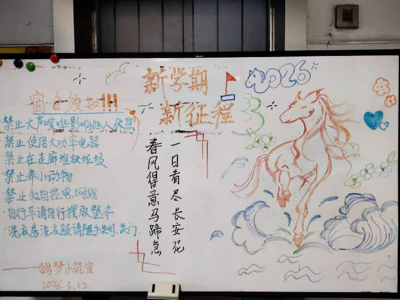 新学期
新征程
2026
宿舍规则!!!
禁止大声喧哗影响他人休息
禁止使用大功率电器
禁止在走廊堆放垃圾
禁止养小动物
禁止私自接电、网线
自行车请自行摆放整齐
洗衣房洗衣服请随手关灯、关门
2026.3.12
一日看尽长安花
春风得意马蹄急